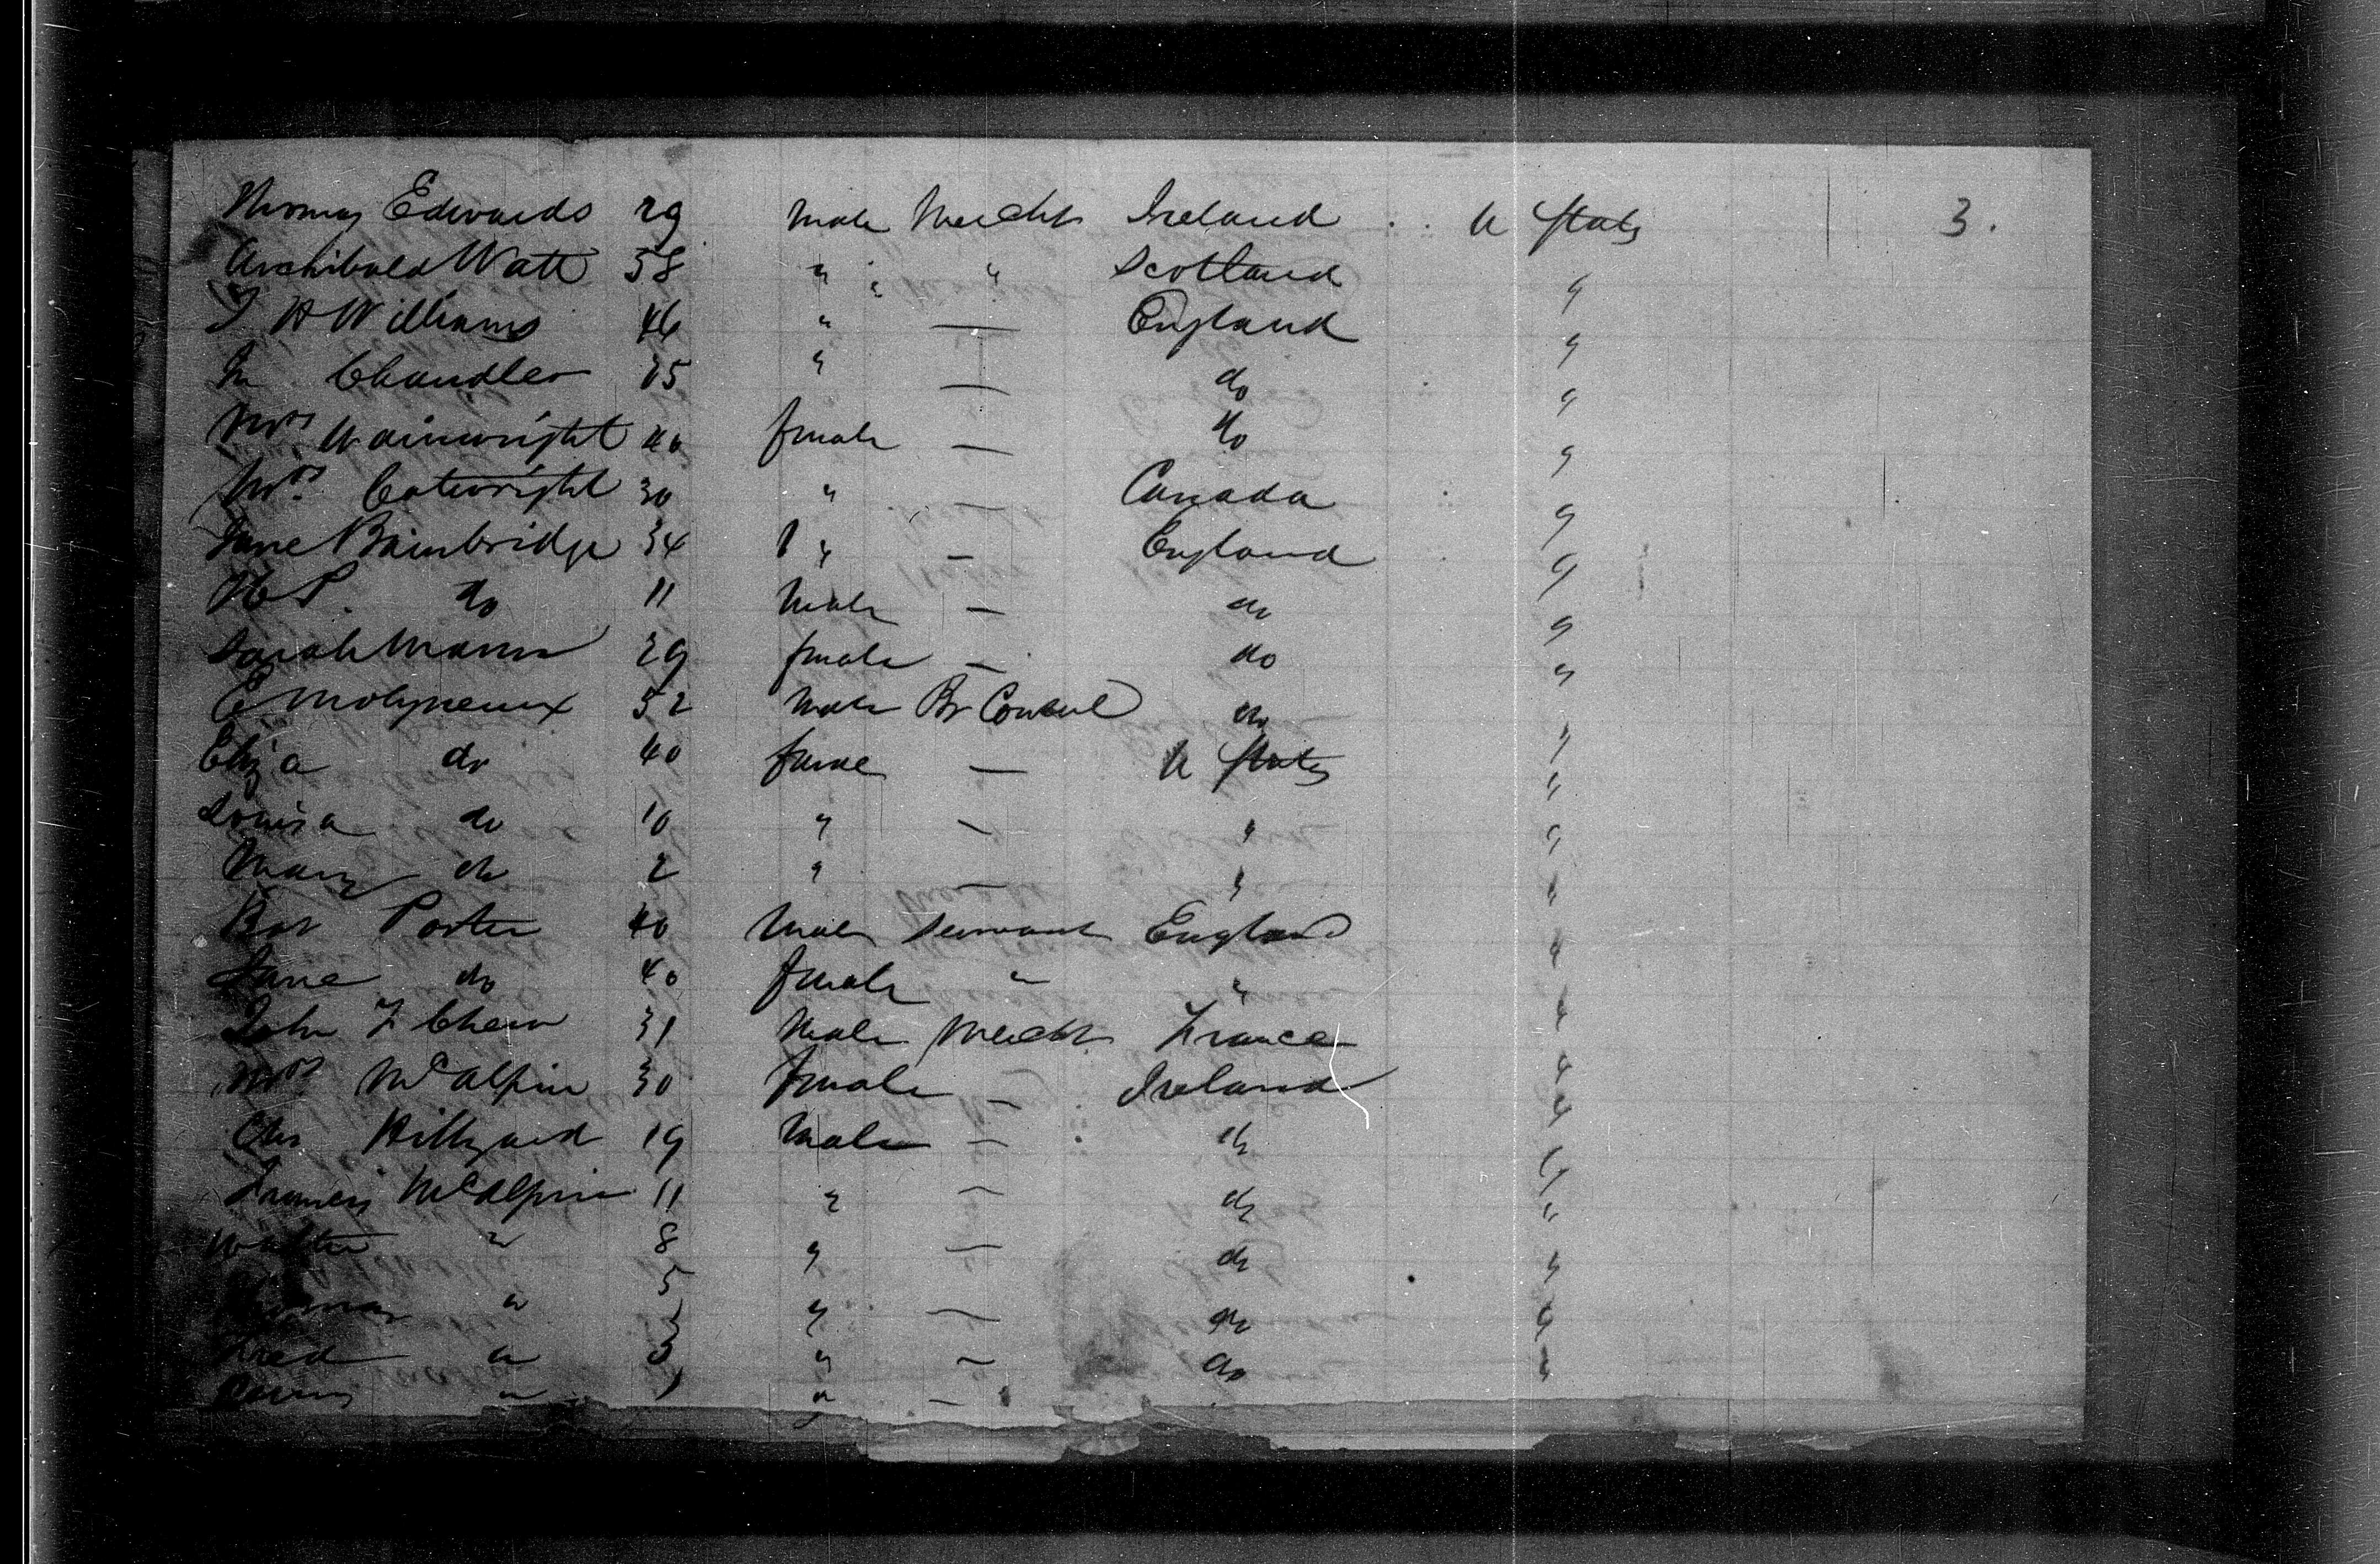 Thomas Edwards 29 Male Mercht Ireland U States 3.
Archibald Watt 58 " " Scotland "
J H Williams 46 " — England "
Jn Chandler 25 " — do "
Mrs Wainwright 40 female — do "
Mrs Catwright 30 " — Canada "
Jane Bainbridge 34 " — England "
H P. do 11 Male — do "
Sarah Mann 29 female — do "
E Molyneux 52 Male Br Consul do "
Eliza do 40 female — U States "
Louisa do 10 " — " "
Mary do 2 " — " "
Porter 40 Male Servant England "
Jane do 40 female " " "
John F Chew 31 Male Mercht France "
Mrs McAlpin 30 female — Ireland "
Chs Hillyard 19 Male — do "
Francis McAlpin 11 " — do "
Walter " 8 " — do "
Thomas " 5 " — do "
Fred " 3 " — do "
" 1 " —